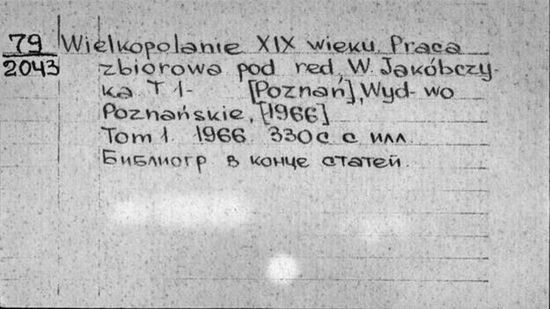 79
2043
Wielkopolanie XIX wieku. Praca
zbiorowa pod red, W. Jakóbczy-
ka. T 1- [Poznań], Wyd-wo
Poznańskie, [1966]
Tom 1. 1966. 330 с с илл.
Библиогр в конце статей.